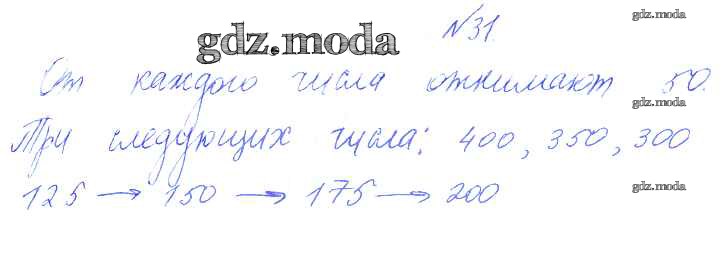 gdz.moda
№31.
gdz.moda
От каждого числа отнимают 50.
gdz.moda
Три следующих числа: 400, 350, 300
125 → 150 → 175 → 200
gdz.moda